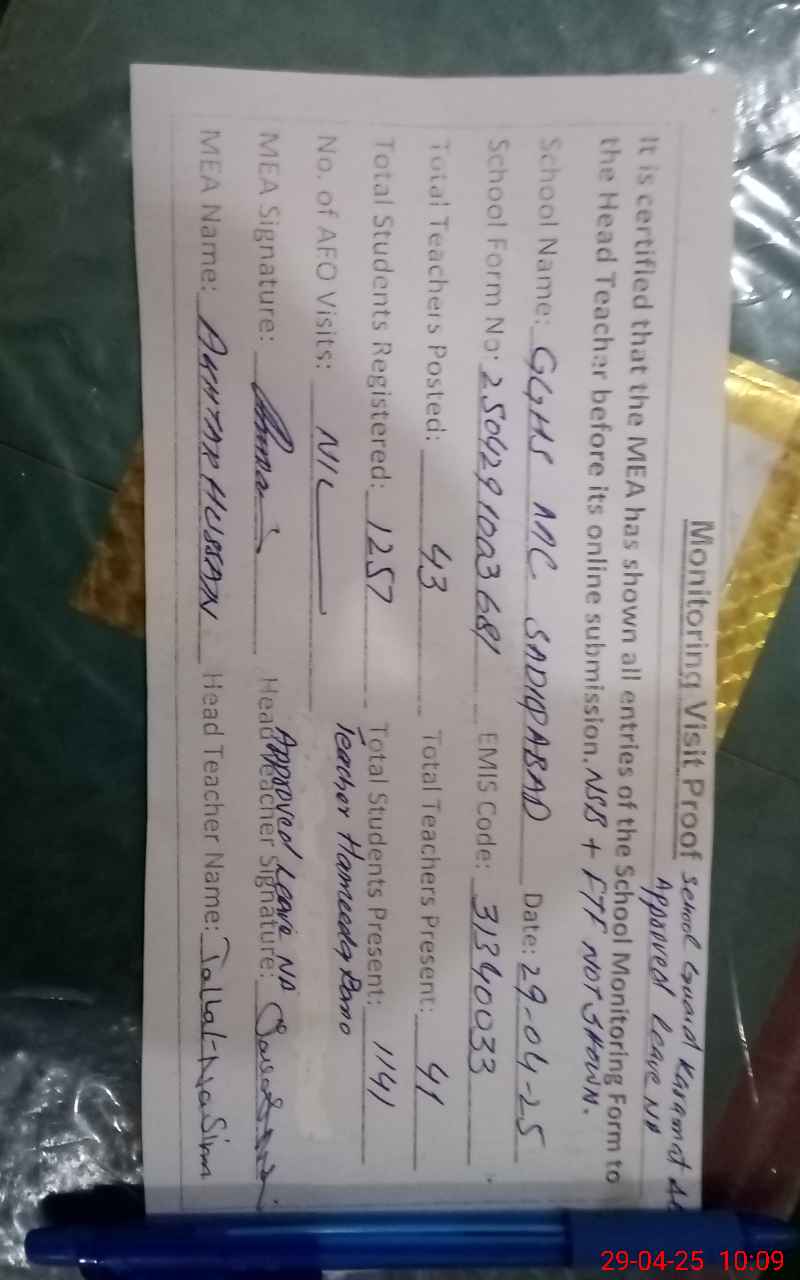 Monitoring Visit Proof School Guard Karamat
Approved Leave NA
It is certified that the MEA has shown all entries of the School Monitoring Form to
the Head Teacher before its online submission. NSB + FTF NOT SHOWN.
School Name: GGHS AAC SADIQABAD Date: 29-04-25
School Form No: 2504291003681 EMIS Code: 31340033
Total Teachers Posted: 43 Total Teachers Present: 41
Total Students Registered: 1257 Total Students Present: 1141
No. of AFO Visits: NIL Teacher Hameeda Bano
Approved Leave NA
MEA Signature: Head Teacher Signature:
MEA Name: AKHTAR HUSSAIN Head Teacher Name: Tallat Nasim
29-04-25 10:09